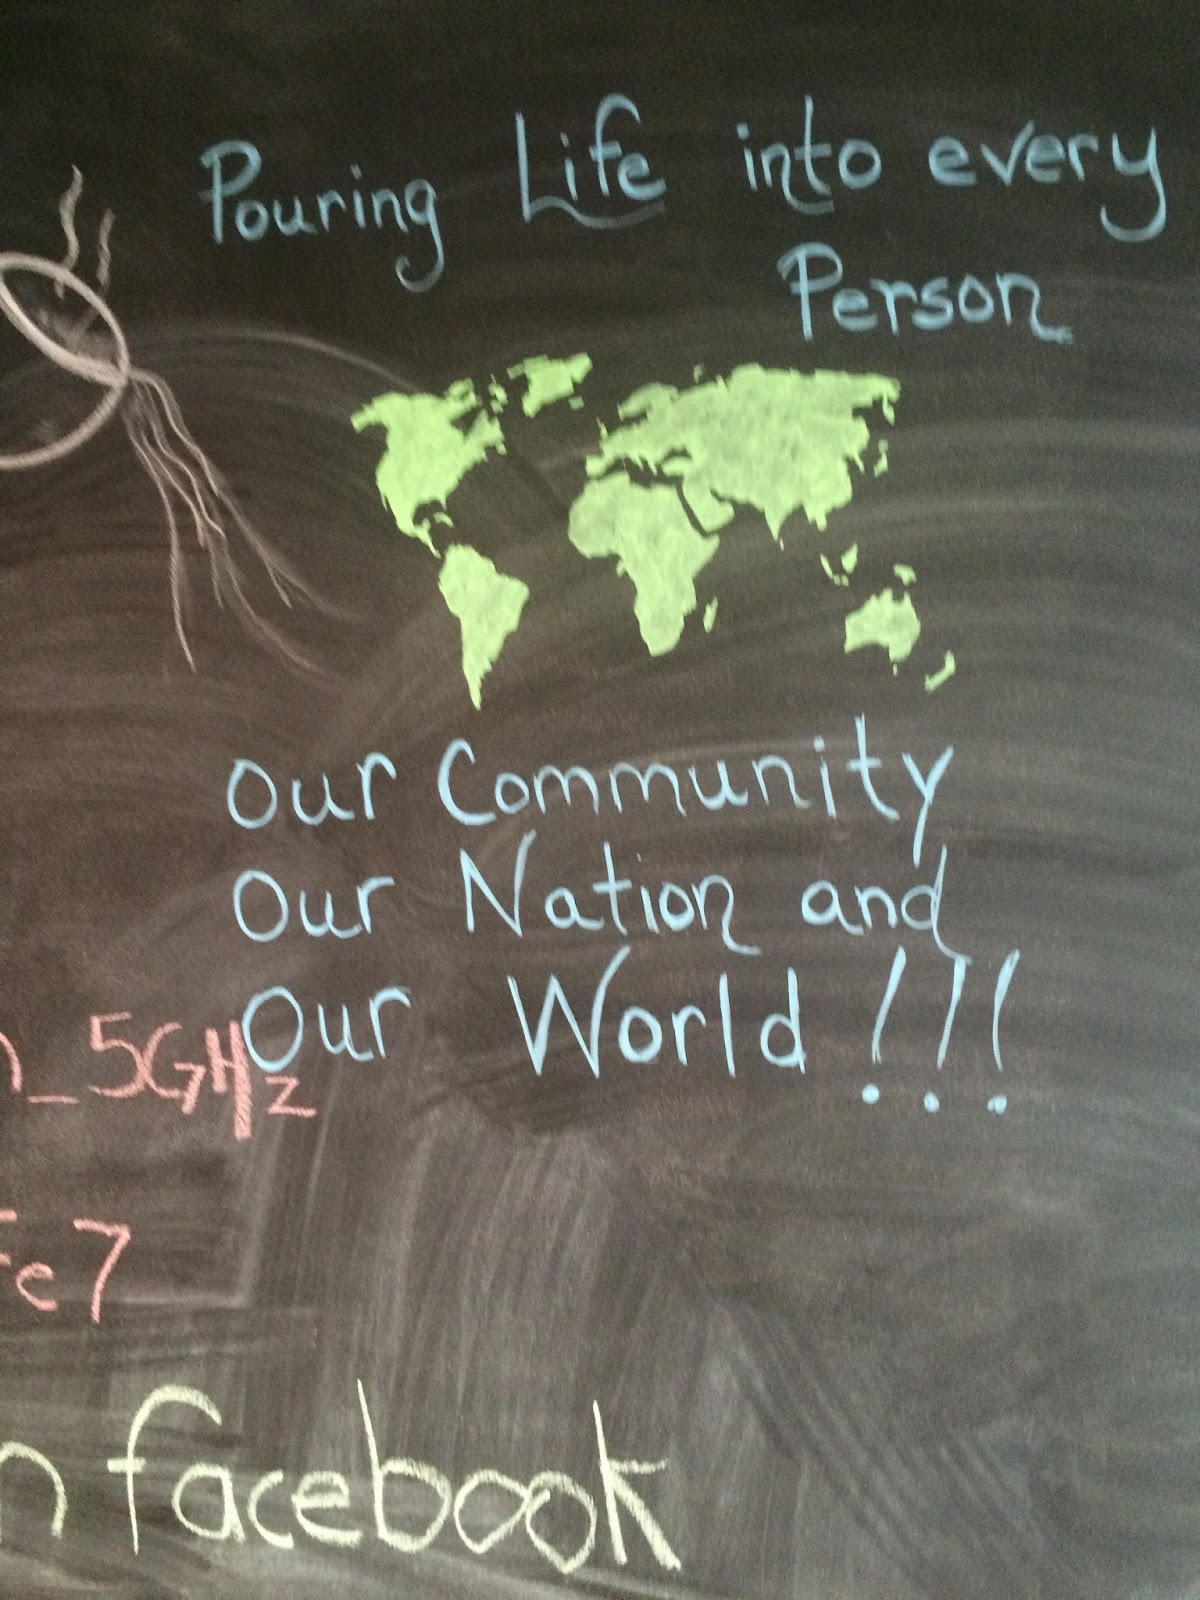 Pouring Life into every
Person
Our Community
Our Nation and
Our World !!!
_5GHz
fe7
n facebook